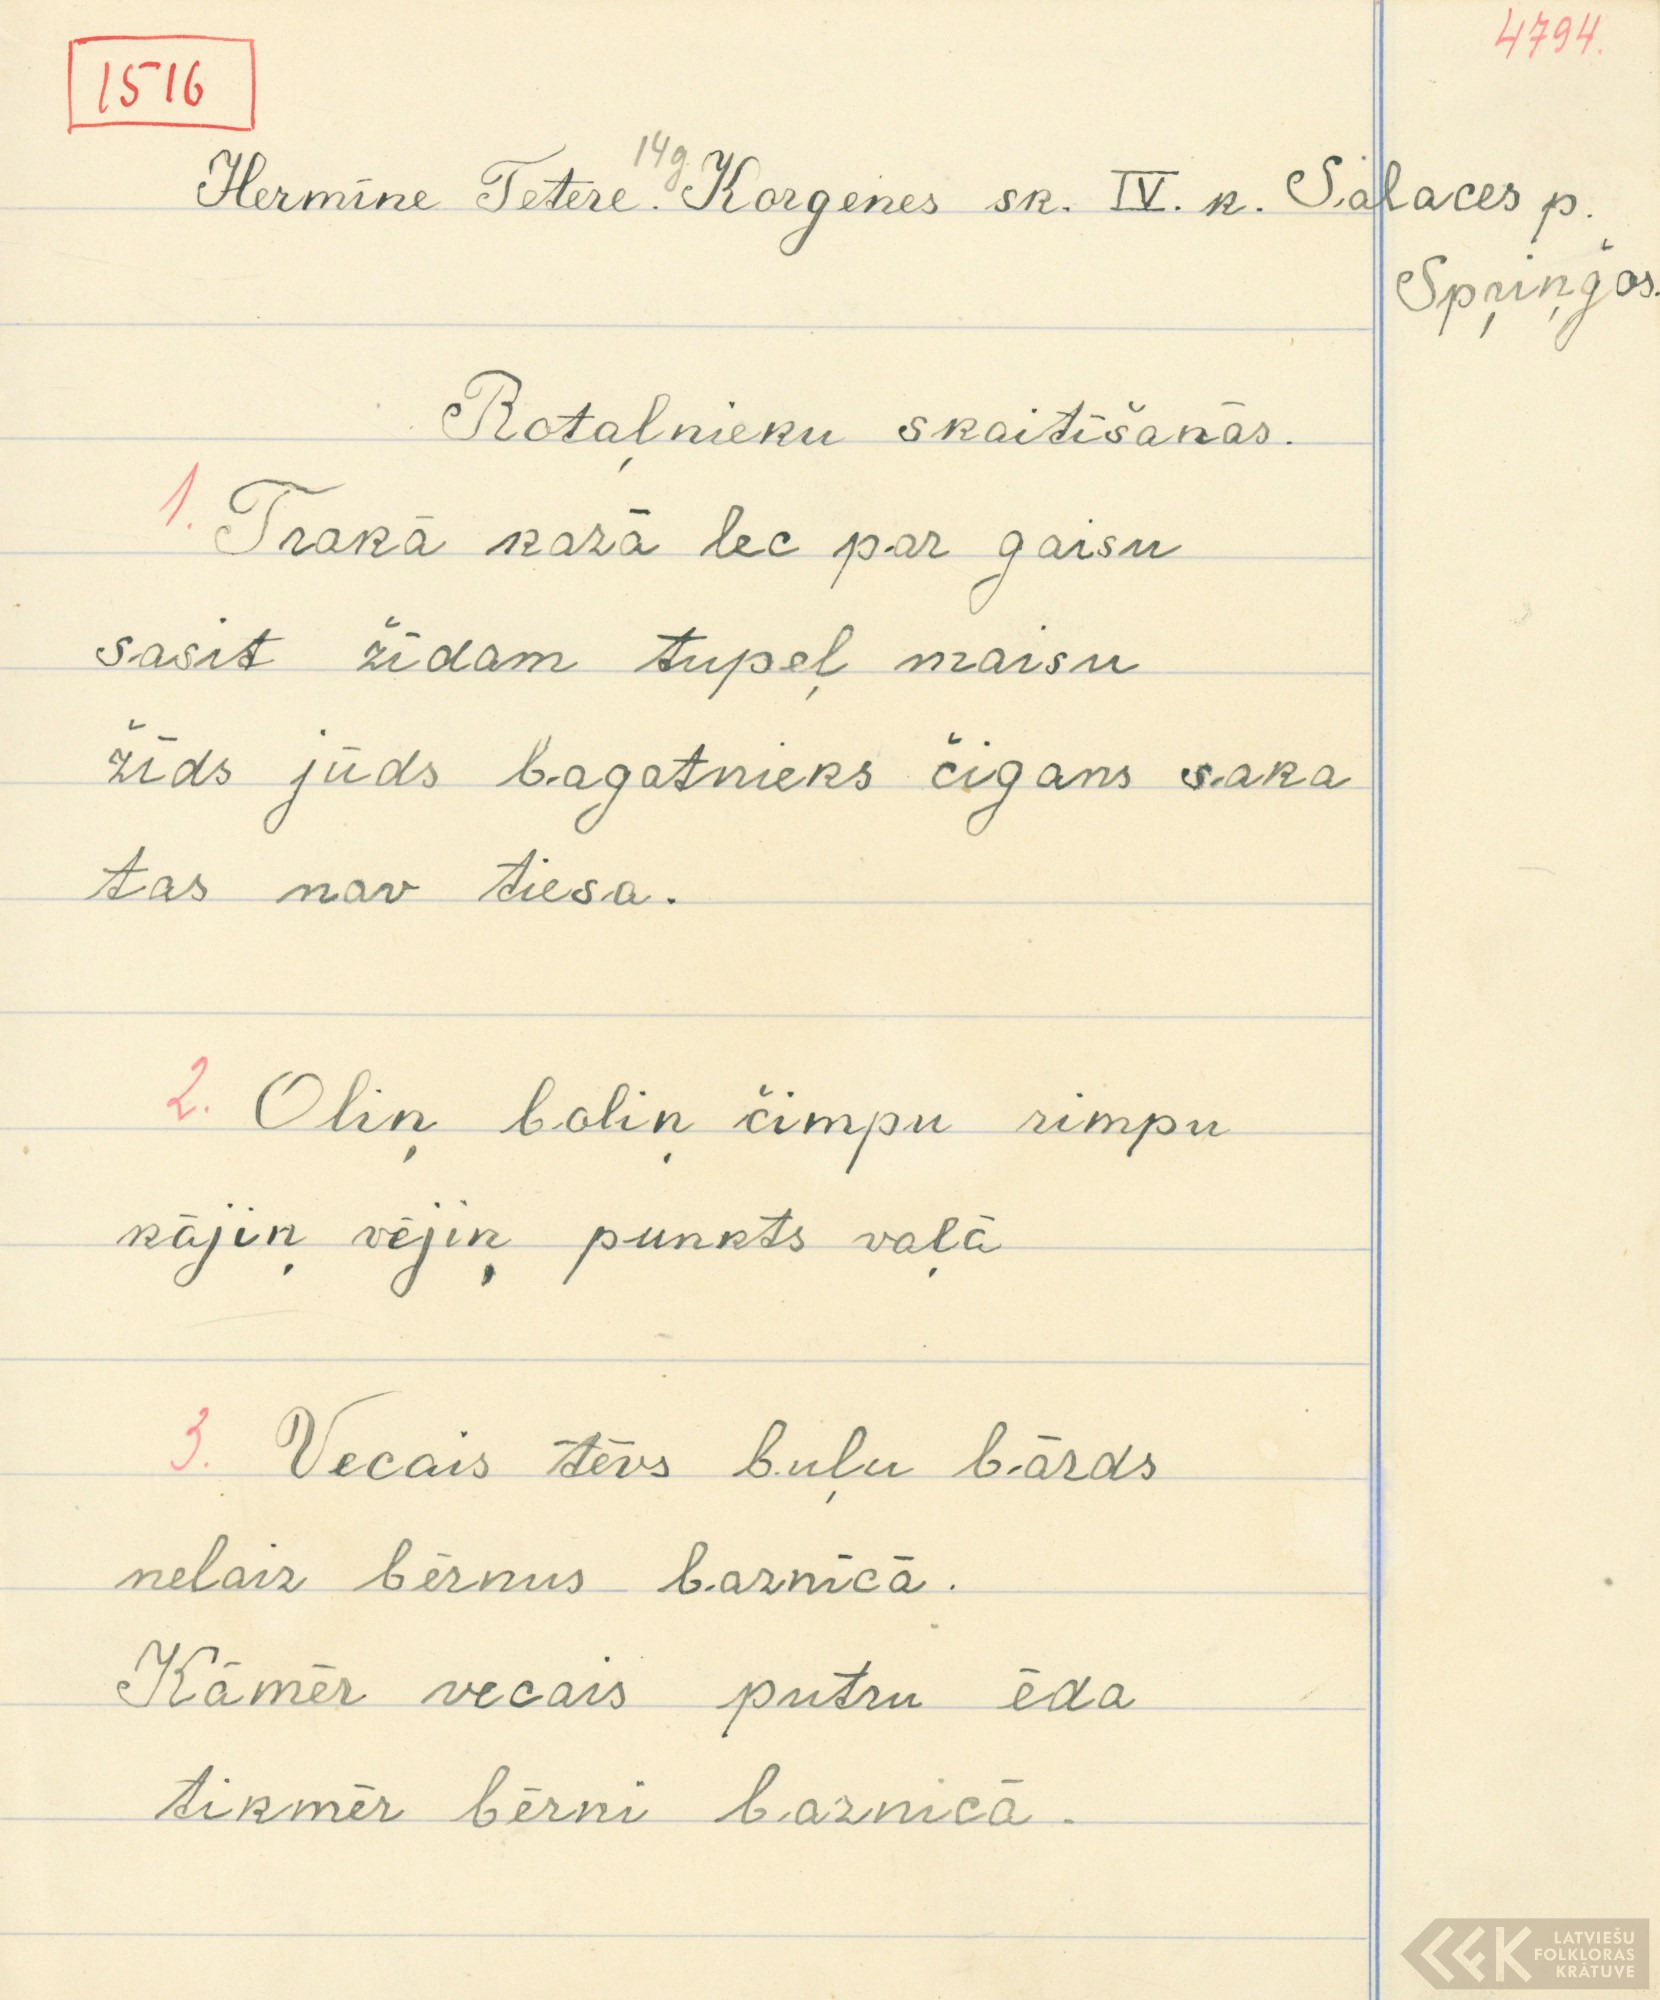 4794.
1516
14g.
Hermīne Tetere. Korģenes sk. IV. k. Salaces p.
Spŗiņģos.
Rotaļnieku skaitīšanās.
1. Trakā kazā lec par gaisu
sasit žīdam tupeļ maisu
žīds jūds bagatnieks čigans saka
tas nav tiesa.
2. Oliņ boliņ čimpu rimpu
kājiņ vējiņ punkts vaļā
3. Vecais tēvs buļu bārds
nelaiz bērnus baznīcā.
Kāmēr vecais putru ēda
tikmēr bērni baznicā.
LATVIEŠU
FOLKLORAS
KRĀTUVE